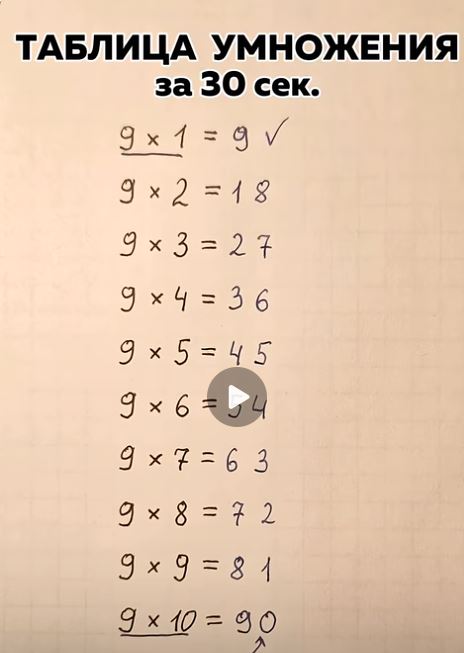 ТАБЛИЦА УМНОЖЕНИЯ
за 30 сек.
9 × 1 = 9 ✓
9 × 2 = 18
9 × 3 = 27
9 × 4 = 36
9 × 5 = 45
9 × 6 = 54
9 × 7 = 63
9 × 8 = 72
9 × 9 = 81
9 × 10 = 90